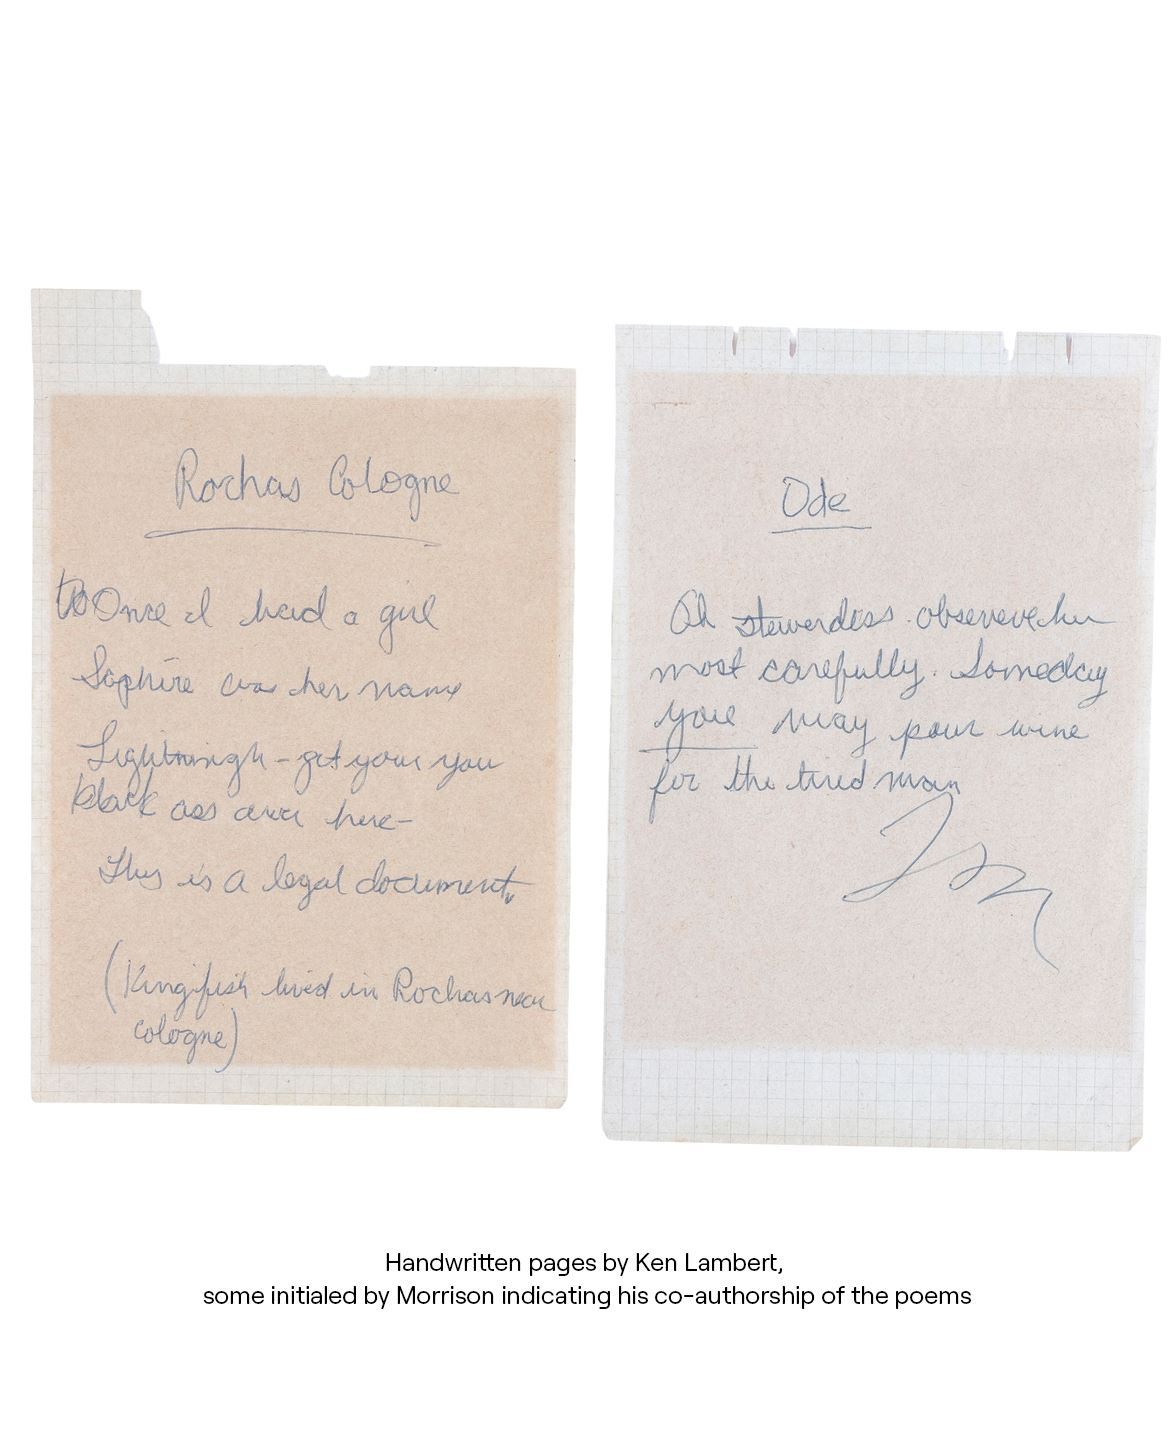 Rochas Cologne
Once I had a girl
Saphire was her name
Lightningh - get your you
black ass over here-
This is a legal document.
(Kingifish lived in Rochas near
cologne)
Ode
Oh stewerdess. obseneve her
most carefully. Someday
you may pour wine
for the tired man
Handwritten pages by Ken Lambert,
some initialed by Morrison indicating his co-authorship of the poems